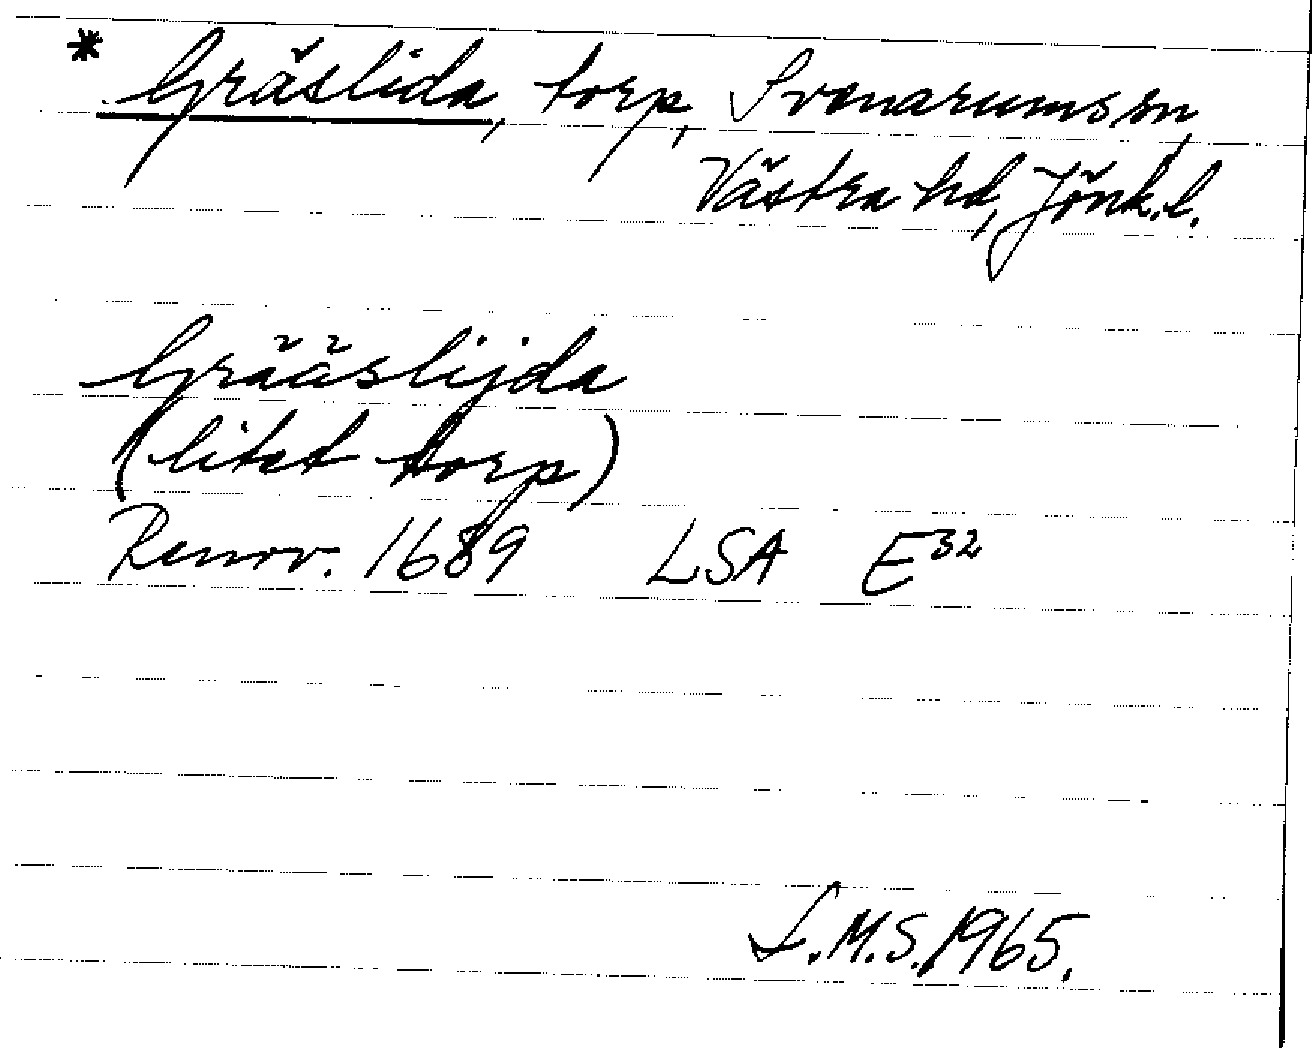 * Gräslida, torp, Svenarums sn,
Västra hd, Jönk.l.
Grääslijda
(litet torp)
Renov. 1689 LSA E32
L.M.S. 1965.